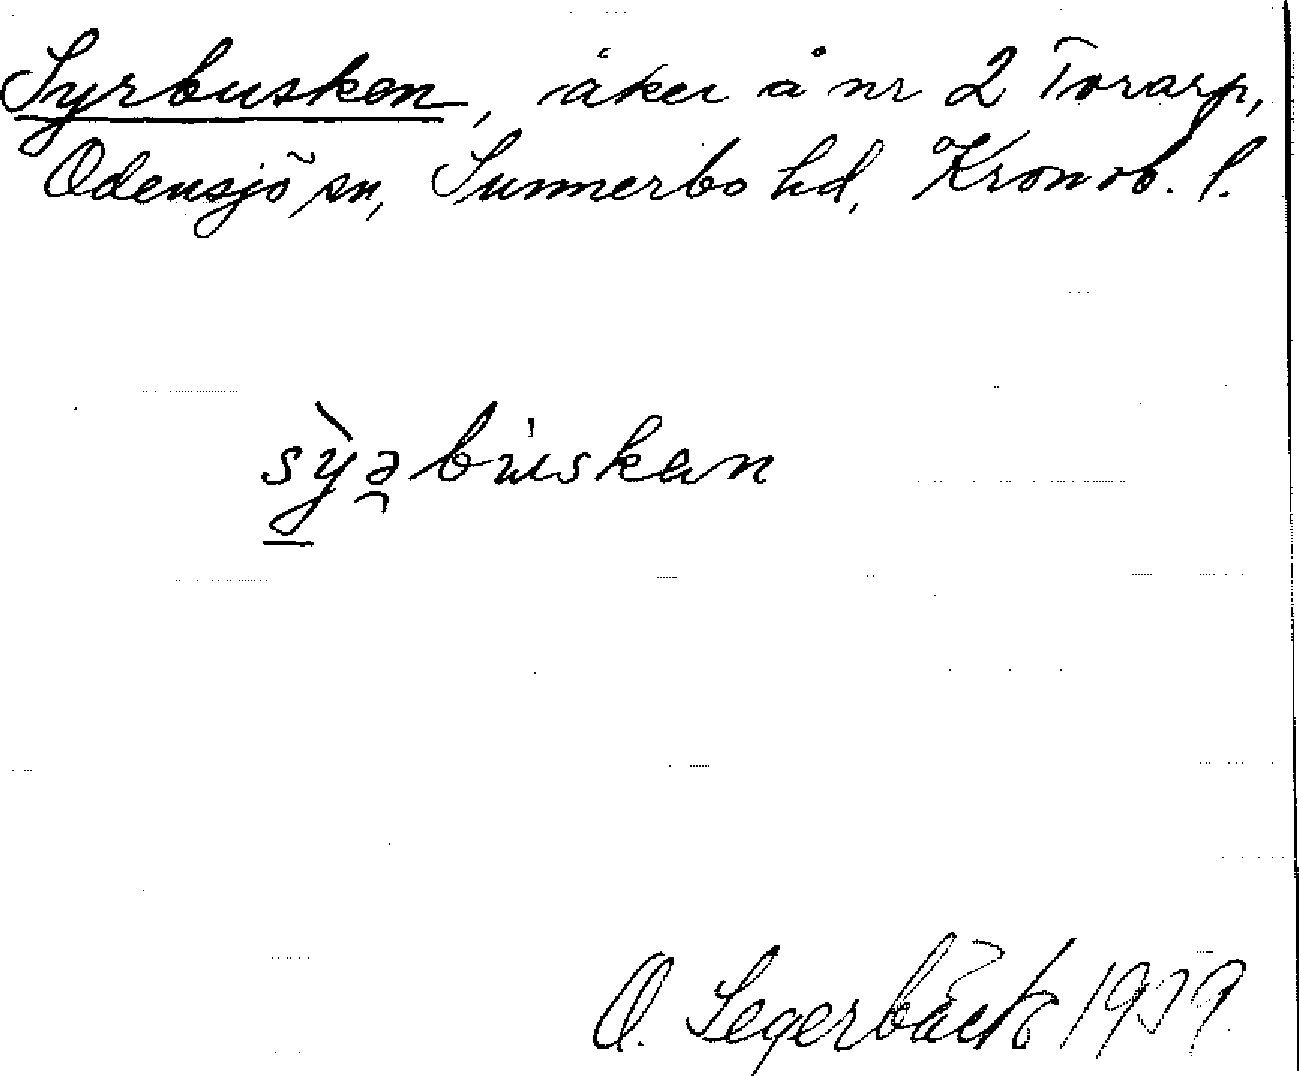 Syrbusken, åker å nr 2 Torarp,
Odensjö sn, Sunnerbo hd, Kronob. l.
sỳ̠ə̯bu̍skan
O. Segerbäck 1939